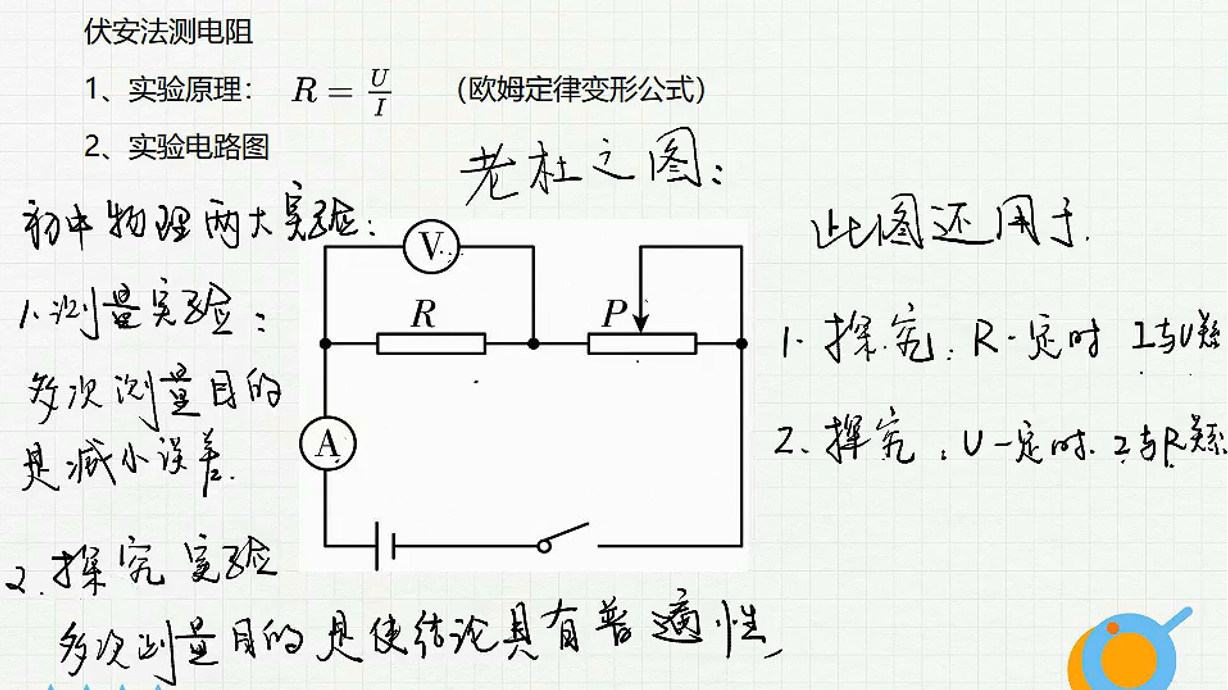 伏安法测电阻
1、实验原理： R = U/I （欧姆定律变形公式）
2、实验电路图
老杜之图：
初中物理两大实验：
1.测量实验：
多次测量目的
是减小误差.
2.探究实验
多次测量目的是使结论具有普适性
V
R
P
A
此图还用于.
1.探究：R一定时 I与U关系
2.探究：U一定时.I与R关系